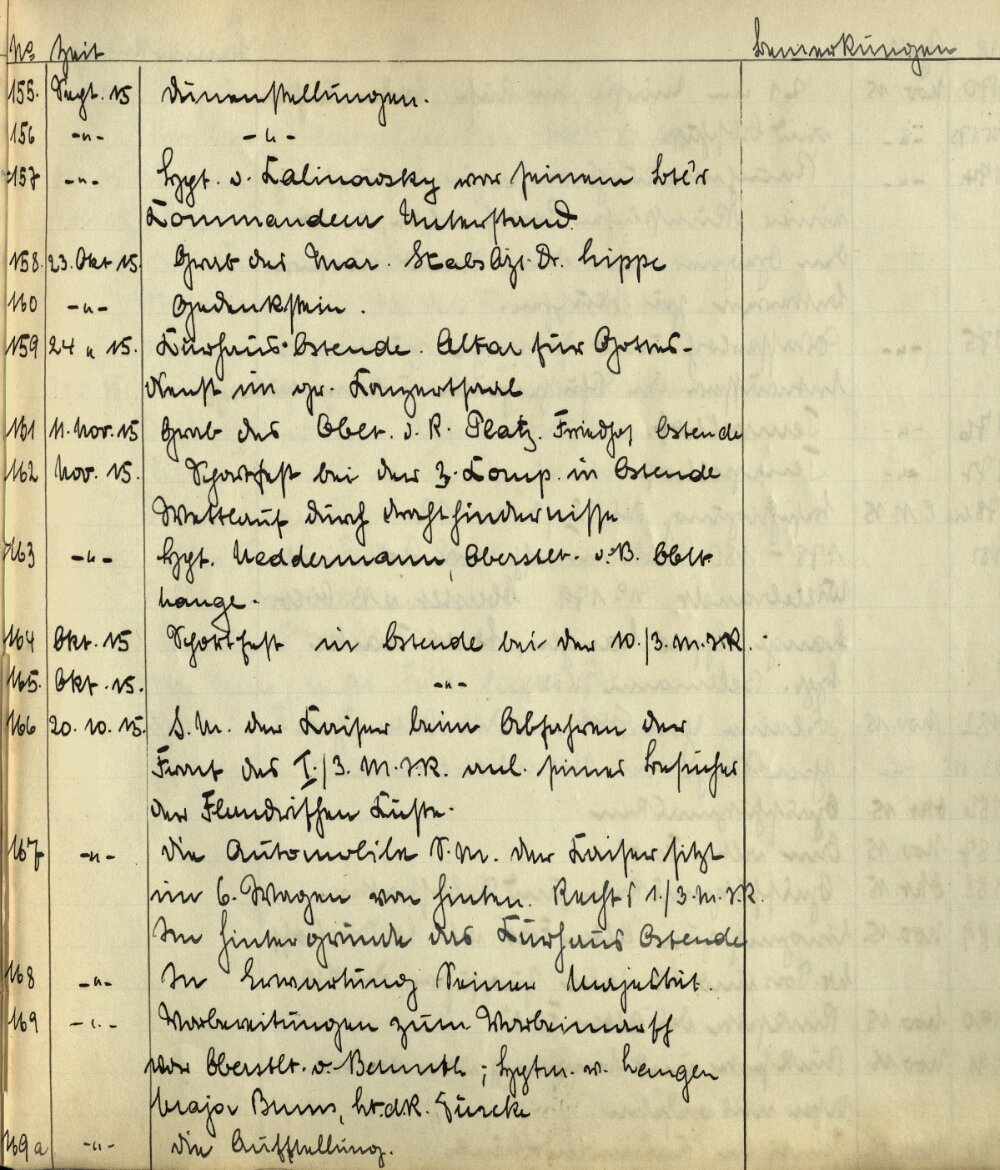 No Zeit Bemerkungen
155. Sept. 15 Dünenstellungen.
156 -"- -"-
157 -"- Hpt. v. Kalinowsky vor seinem
Kommandeur Unterstand
158. 23. Okt 15. Grab des Mar. Stabsazt. Dr. Lippe
160 -"- Gedenkstein.
159 24 " 15. Kurhaus-Ostende. Altar für Gottes-
dienst im gr. Konzertsaal
161 11. Nov. 15 Grab des Oblt. d. R. Platz. Friedhof Ostende
162 Nov. 15. Sportfest bei der 3. Komp. in Ostende
Wettlauf durch Drahthindernisse
163 -"- Hpt. Neddermann, Oberstlt. v. B. Oblt.
Lange.
164 Okt. 15 Sportfest in Ostende bei der 10./3. M.I.R.
165. Okt. 15. -"-
166 20. 10. 15. S.M. der Kaiser beim Abfahren der
Front des I./3. M.I.R. anl. seines Besuches
der Flandrischen Küste.
167 -"- Die Automobile S.M. der Kaiser sitzt
im 6. Wagen von hinten. Rechts 1./3. M.I.R.
Im Hintergrunde das Kurhaus Ostende
168 -"- In Erwartung Seiner Majestät.
169 -"- Vorbereitungen zum Vorbeimarsch
vor Oberstlt. v. Bernuth; Hptm. v.
Major Buns, Lt. d.R.
169a -"- Die Aufstellung.